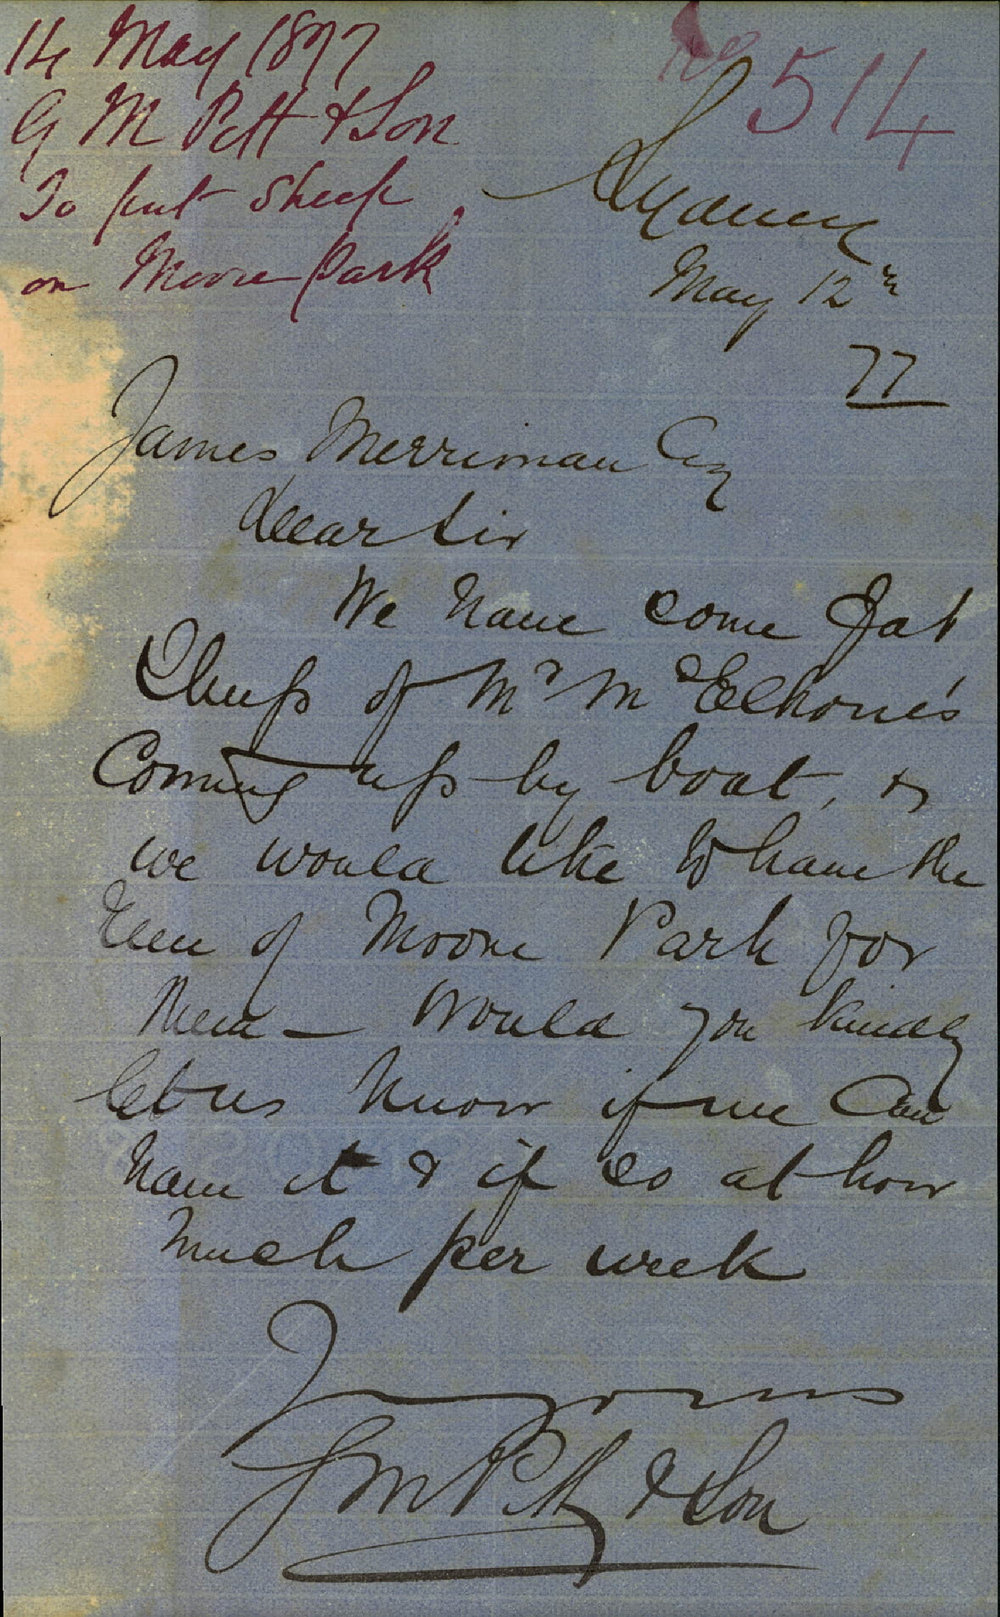 14 May 1877
G M Pitt & Son
To put Sheep
on Moore Park
No 514
Sydney
May 12th
77
James Merriman Esq
Dear Sir
We have some Fat
Sheep of Mr McElhone's
Coming up by boat, &
we would like to have the
use of Moore Park for
them – Would you kindly
let us know if we can
have it & if so at how
much per week
Yours
G M Pitt & Son